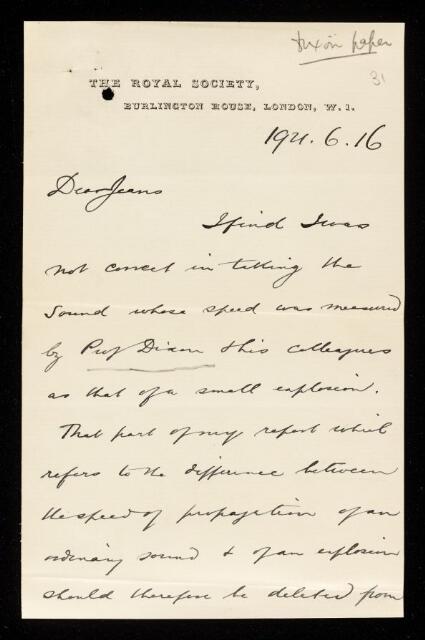 Dixon paper
31
THE ROYAL SOCIETY,
BURLINGTON HOUSE, LONDON, W. 1.
1921. 6. 16
Dear Jeans
I find I was
not correct in taking the
sound whose speed was measured
by Prof Dixon & his colleagues
as that of a small explosion.
That part of my report which
refers to the difference between
the speed of propagation of an
ordinary sound & of an explosion
should therefore be deleted from